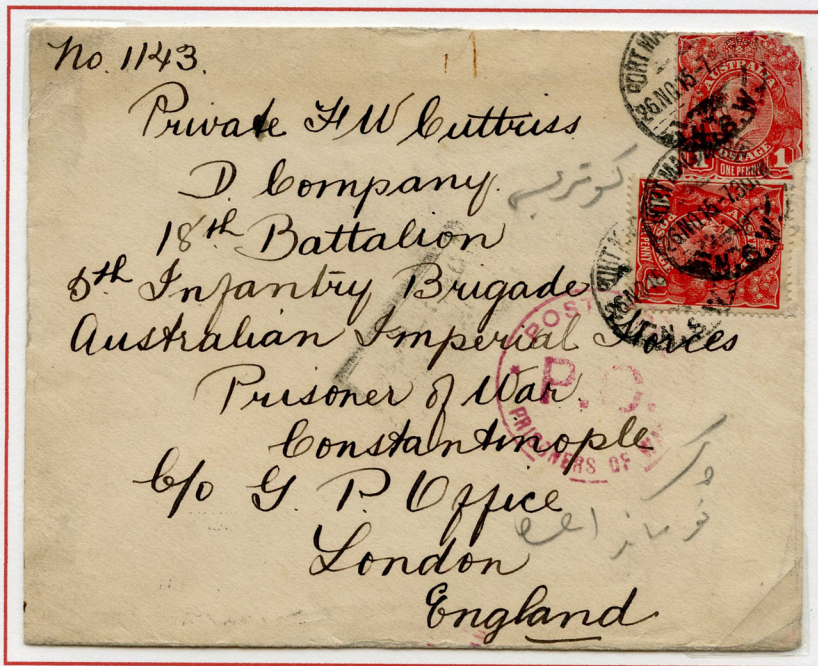 No. 1143.
Private F W Cuttriss
D. Company.
18th Battalion
5th Infantry Brigade
Australian Imperial Forces
Prisoner of War
Constantinople
C/o G. P. Office
London
England
AUSTRALIA
ONE PENNY
26 NO 15
N.S.W.
26 NO 15
N.S.W.
POST
P.C.
PRISONERS OF WAR